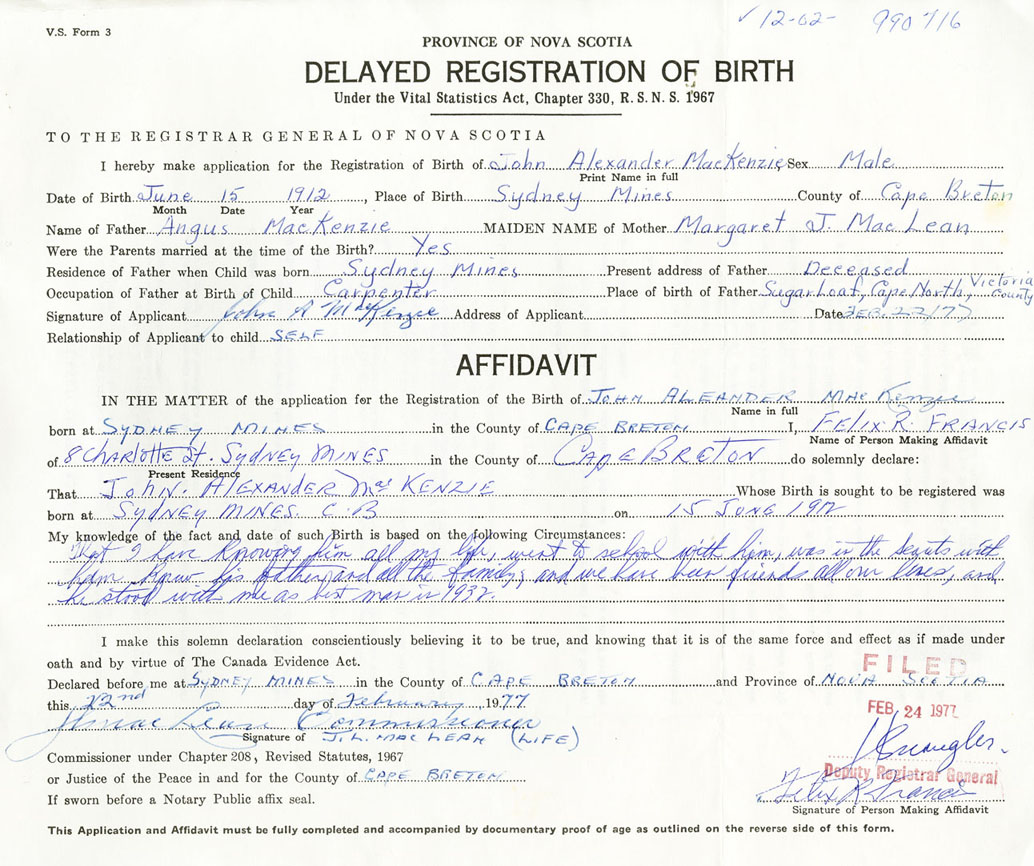 V.S. Form 3
✓12-02- 990716
PROVINCE OF NOVA SCOTIA
DELAYED REGISTRATION OF BIRTH
Under the Vital Statistics Act, Chapter 330, R.S.N.S. 1967
TO THE REGISTRAR GENERAL OF NOVA SCOTIA
I hereby make application for the Registration of Birth of John Alexander MacKenzie Sex Male
Print Name in full
Date of Birth June 15 1912, Place of Birth Sydney Mines County of Cape Breton
Month Date Year
Name of Father Angus MacKenzie MAIDEN NAME of Mother Margaret J. MacLean
Were the Parents married at the time of the Birth? Yes
Residence of Father when Child was born Sydney Mines Present address of Father Deceased
Occupation of Father at Birth of Child Carpenter Place of birth of Father Sugar Loaf, Cape North, Victoria County
Signature of Applicant John A MacKenzie Address of Applicant Date FEB. 22/77
Relationship of Applicant to child SELF
AFFIDAVIT
IN THE MATTER of the application for the Registration of the Birth of JOHN ALEANDER MacKenzie
Name in full
born at SYDNEY MINES in the County of CAPE BRETON I, FELIX R. FRANCIS
Name of Person Making Affidavit
of 8 Charlotte St. SYDNEY MINES in the County of CAPE BRETON do solemnly declare:
Present Residence
That JOHN. ALEXANDER MacKENZIE Whose Birth is sought to be registered was
born at SYDNEY MINES. C.B on 15 JUNE 1912
My knowledge of the fact and date of such Birth is based on the following Circumstances:
That I have knowing him all my life, went to school with him, was in the scouts with
him knew his father, and all the family, and we have been friends all our lives, and
he stood with me as best man in 1932.
I make this solemn declaration conscientiously believing it to be true, and knowing that it is of the same force and effect as if made under
oath and by virtue of The Canada Evidence Act.
FILED
Declared before me at SYDNEY MINES in the County of CAPE BRETON and Province of NOVA SCOTIA
this 22nd day of February, 1977
FEB 24 1977
J L MacLean Commissioner
Signature of J.L. MACLEAN (LIFE)
Commissioner under Chapter 208, Revised Statutes, 1967
or Justice of the Peace in and for the County of CAPE BRETON
Deputy Registrar General
If sworn before a Notary Public affix seal.
Felix R Francis
Signature of Person Making Affidavit
This Application and Affidavit must be fully completed and accompanied by documentary proof of age as outlined on the reverse side of this form.